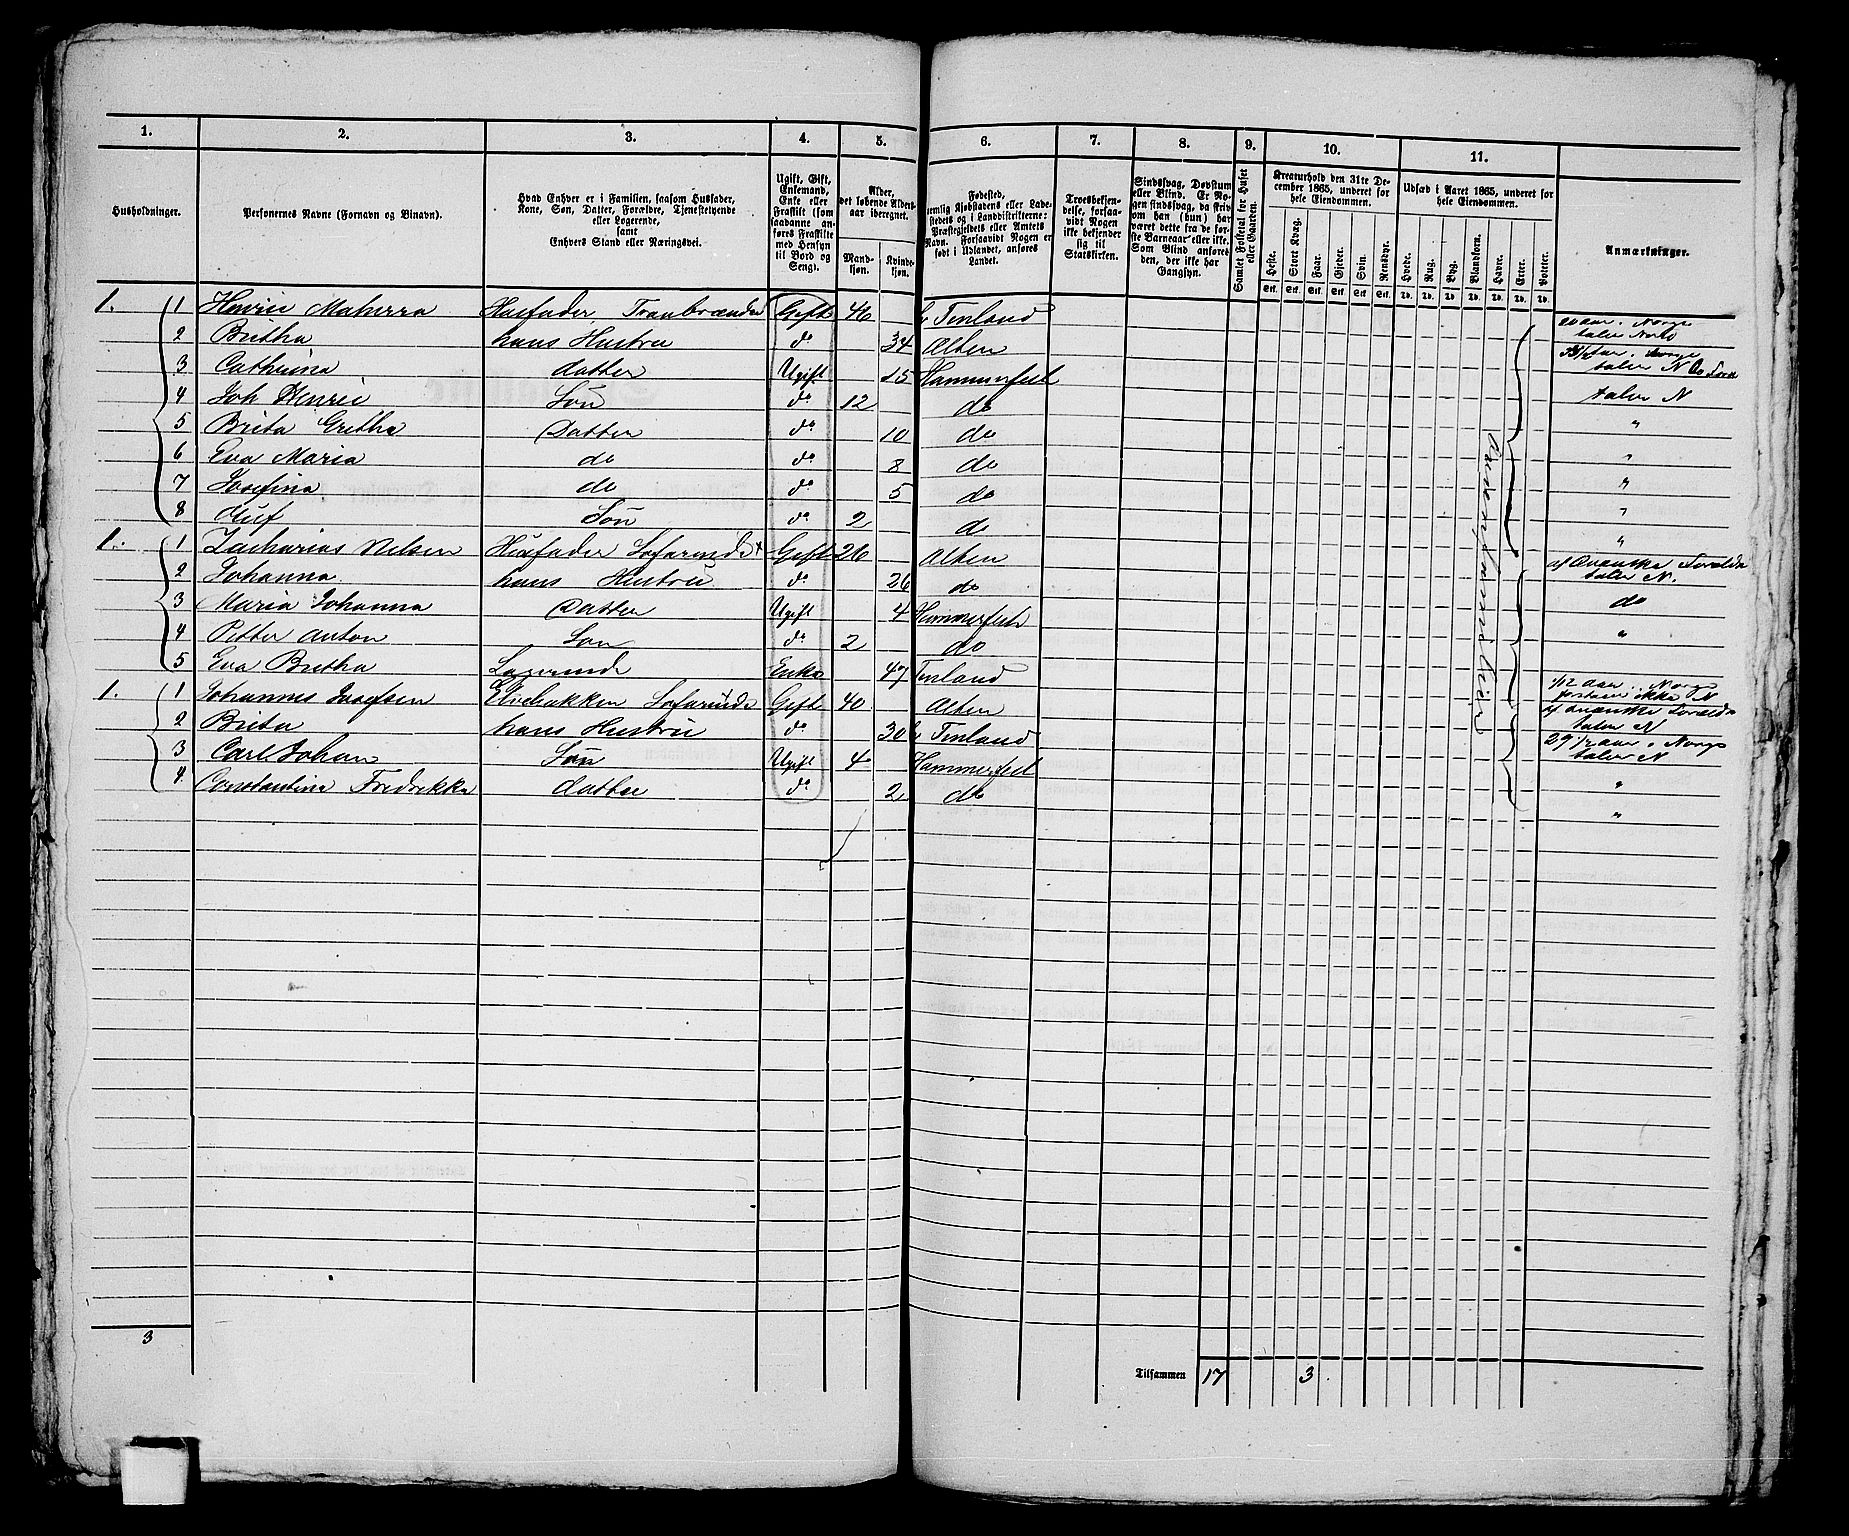 1. 2. 3. 4. 5. 6. 7. 8. 9. 10. 11.
Husholdninger.
Personernes Navne (Fornavn og Binavn).
Hvad Enhver er i Familien, saasom Husfader,
Kone, Søn, Datter, Forældre, Tjenestetyende
eller Logerende,
samt
Enhvers Stand eller Næringsvei.
Ugift, Gift,
Enkemand,
Enke eller
Fraskilt (som
saadanne an-
føres Fraskilte
med Hensyn
til Bord og
Seng).
Alder,
det løbende Alders-
aar iberegnet.
Mand-
kjøn.
Kvinde-
kjøn.
Fødested,
nemlig Kjøbstadens eller Lade-
stedets og i Landdistrikterne:
Præstegjeldets eller Amtets
Navn. Forsaavidt Nogen er
født i Udlandet, anføres
Landet.
Troesbekjen-
delse, forsaa-
vidt Nogen
ikke bekjender
sig til
Statskirken.
Sindssvag, Døvstum
eller Blind. Er No-
gen sindssvag, da skriv
om han (hun) har
været dette fra de før-
ste Barneaar eller ikke.
Som Blind anføres
den, der ikke har
Gangsyn.
Samlet Folketal for Huset
eller Gaarden.
Kreaturhold den 31te De-
cember 1865, underet for
hele Eiendommen.
Heste. Stort Kvæg. Faar. Gjeder. Svin. Rensdyr.
Stk. Stk. Stk. Stk. Stk. Stk.
Udsæd i Aaret 1865, underet for
hele Eiendommen.
Hvede. Rug. Byg. Blandkorn. Havre. Erter. Poteter.
Td. Td. Td. Td. Td. Td. Td.
Anmærkninger.
1. 1 Henric Matterra Husfader Gift 46 Finland
2 Britha hans Hustru do 34 Alten
3 Cathrina datter Ugift 15 Hammerfest
4 Joh Henric Søn do 12 do taler N
5 Brita Gretha Datter do 10 do "
6 Eva Maria do do 8 do "
7 Josefina do do 5 do "
8 Oluf Søn do 2 do "
1. 1 Zacharias Nilsen Husfader Søfarende Gift 26 Alten "
2 Johanna hans Hustru do 26 do taler N.
3 Maria Johanna Datter Ugift 4 Hammerfest do
4 Petter Anton Søn do 2 do "
5 Eva Britha Logerende Enke 47 Finland
1. 1 Johannes Josefsen Søfarende Gift 40 Alten
2 Brita hans Hustru do 30 Finland taler N
3 Carl Johan Søn Ugift 4 Hammerfest taler N
4 Constantina Fredrikke datter do 2 do "
"
3
Tilsammen 17 3